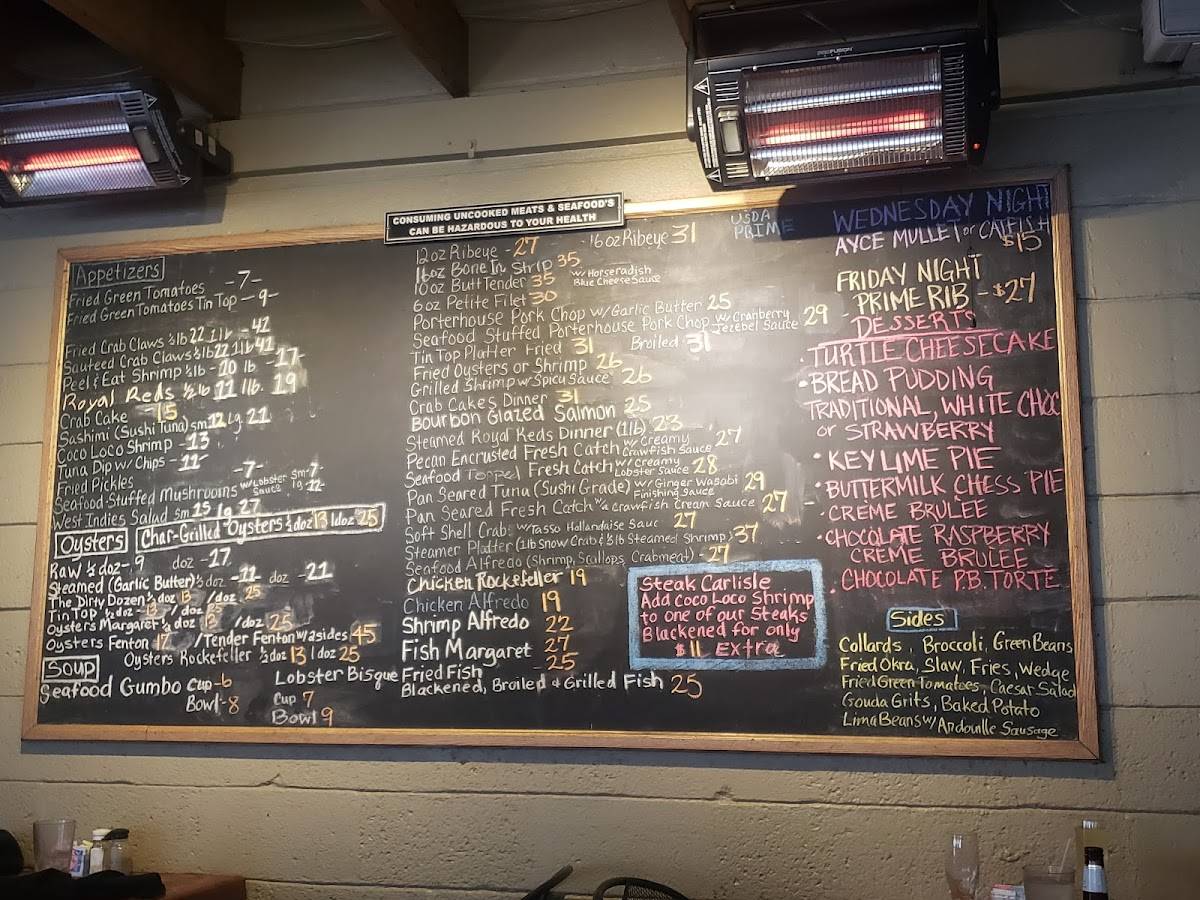 CONSUMING UNCOOKED MEATS & SEAFOOD'S
CAN BE HAZARDOUS TO YOUR HEALTH
Appetizers
Fried Green Tomatoes -7-
Fried Green Tomatoes Tin Top -9-
Fried Crab Claws ½lb 22 1lb -42
Sauteed Crab Claws ½lb 22 1lb 42
Peel & Eat Shrimp ½lb - 20 lb. -17-
Royal Reds ½lb 11 1lb. 19
Crab Cake -15
Sashimi (Sushi Tuna) sm 12 Lg 21
Coco Loco Shrimp -13
Tuna Dip w/ Chips -11-
Fried Pickles -7-
Seafood-Stuffed Mushrooms w/Lobster Sauce sm-7- lg-12-
West Indies Salad sm 15 lg 27
Oysters
Char-Grilled Oysters ½doz 13 1doz 25
Raw ½ doz- 9 doz -17
Steamed (Garlic Butter) ½doz -11- doz -21
The Dirty Dozen ½doz 13 /doz 25
Tin Top ½doz -13 /doz 25
Oysters Margaret ½doz 13 /doz 25
Oysters Fenton 17 /Tender Fenton w/2sides 45
Oysters Rockefeller ½doz 13 1doz 25
Soup
Seafood Gumbo Cup -6
Bowl -8
Lobster Bisque
Cup 7
Bowl 9
12oz Ribeye - 27 - 16oz Ribeye 31
16oz Bone In Strip 35
10oz Butt Tender 35 w/ Horseradish Blue Cheese Sauce
6oz Petite Filet 30
Porterhouse Pork Chop w/Garlic Butter 25
Seafood Stuffed Porterhouse Pork Chop w/ Cranberry Jezebel Sauce 29
Tin Top Platter Fried 31 Broiled 31
Fried Oysters or Shrimp 26
Grilled Shrimp w/ Spicy Sauce 26
Crab Cakes Dinner 31
Bourbon Glazed Salmon 25
Steamed Royal Reds Dinner (1lb) 23
Pecan Encrusted Fresh Catch w/ Creamy Crawfish Sauce 27
Seafood Topped Fresh Catch w/ Creamy Lobster Sauce 28
Pan Seared Tuna (Sushi Grade) w/ Ginger Wasabi Finishing Sauce 29
Pan Seared Fresh Catch w/a Crawfish Cream Sauce 27
Soft Shell Crab w/Tasso Hallandaise Sauc 27
Steamer Platter (1lb Snow Crab & ½lb Steamed Shrimp) 37
Seafood Alfredo (Shrimp, Scallops, Crabmeat) - 27
Chicken Rockefeller 19
Chicken Alfredo 19
Shrimp Alfredo 22
Fish Margaret 27
Fried Fish -25
Blackened, Broiled & Grilled Fish 25
Steak Carlisle
Add Coco Loco Shrimp
to one of our Steaks
Blackened for only
$11 Extra
USDA
PRIME
WEDNESDAY NIGHT
AYCE MULLET or CATFISH
$15
FRIDAY NIGHT
PRIME RIB - $27
DESSERTS
• TURTLE CHEESECAKE
• BREAD PUDDING
TRADITIONAL, WHITE CHOC
or STRAWBERRY
• KEY LIME PIE
• BUTTERMILK CHESS PIE
- CREME BRULEE
• CHOCOLATE RASPBERRY
CREME BRULEE
. CHOCOLATE P.B. TORTE
Sides
Collards, Broccoli, Green Beans
Fried Okra, Slaw, Fries, Wedge
Fried Green Tomatoes, Caesar Salad
Gouda Grits, Baked Potato
Lima Beans w/ Andouille Sausage